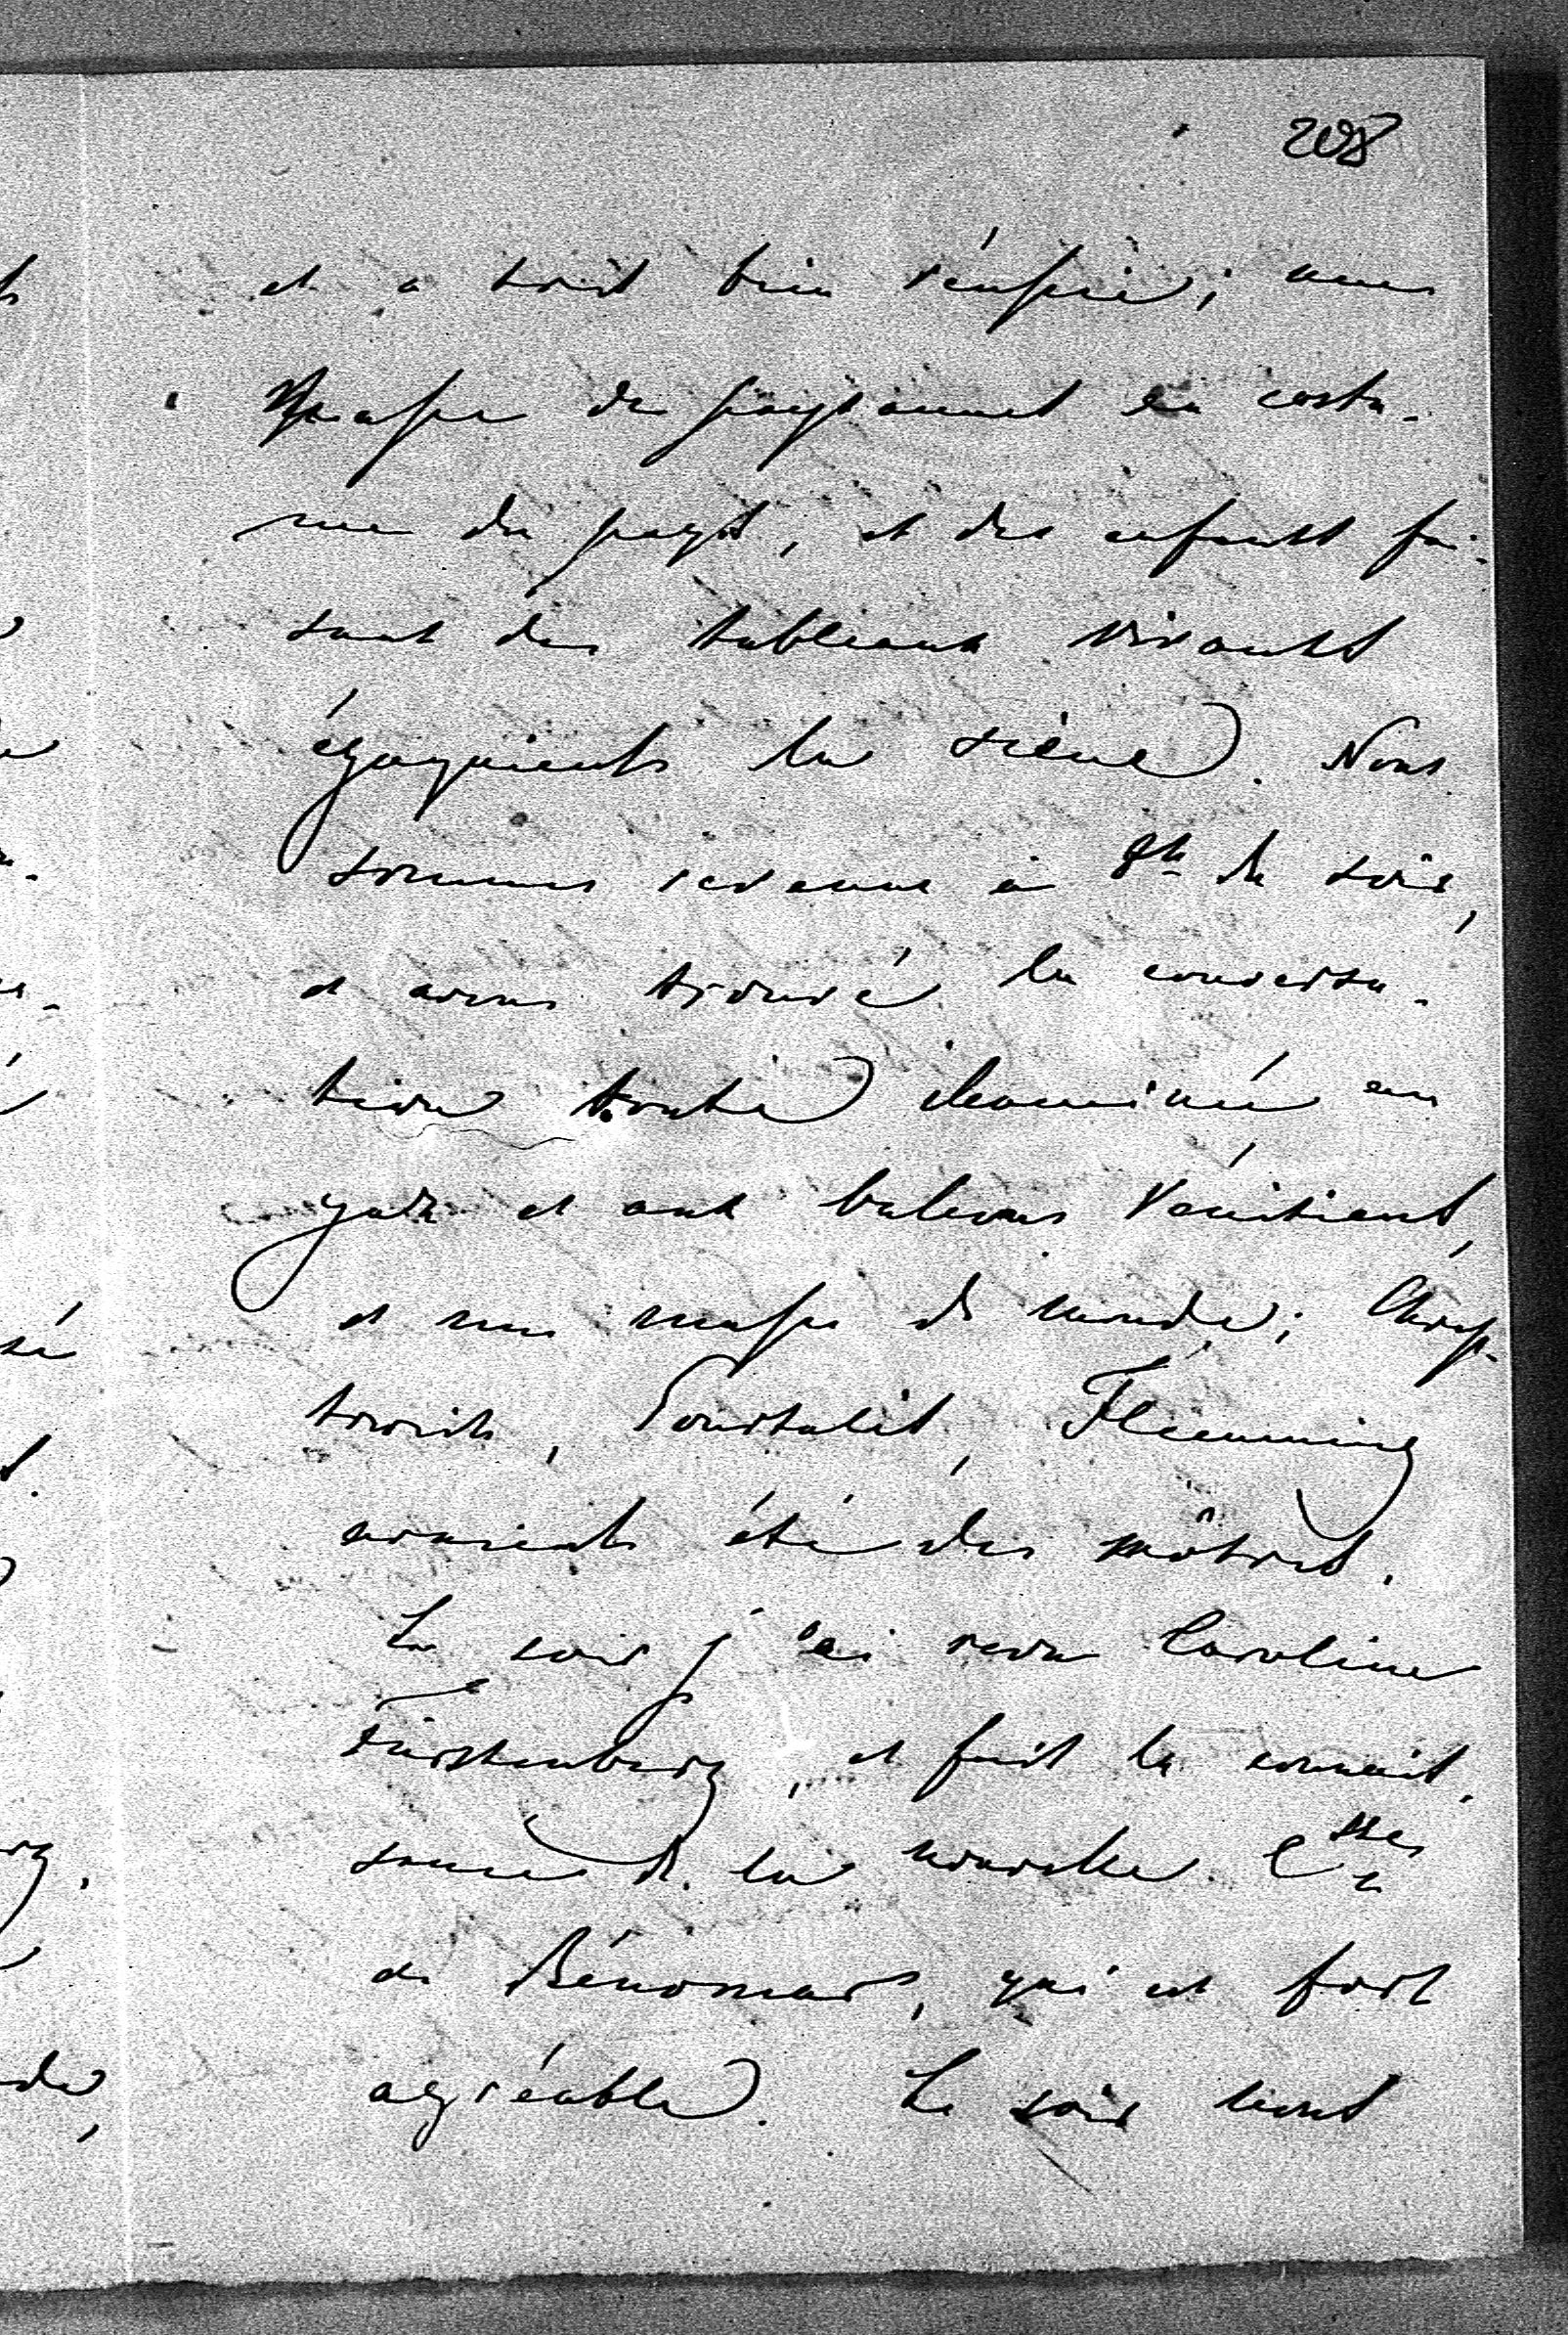 208
et a voit bien réussie; une
masse de paysannes en costu-
me du pays, et des enfants fai-
sant des tableaux vivants
égayaient la scène. Nous
sommes revenus à 8h du soir,
et avons trouvé la conversa-
tion toute illuminée en
gaz et aux balons Vénitiens,
et une masse de monde;
Pourtalès, Flemming
avaient été des nôtres.
Le soir j'ai revu Caroline
Fürstenberg, et fait la connais-
sance de la nouvelle Ctesse
de Bénomar, qui est fort
agréable. Le soir nous